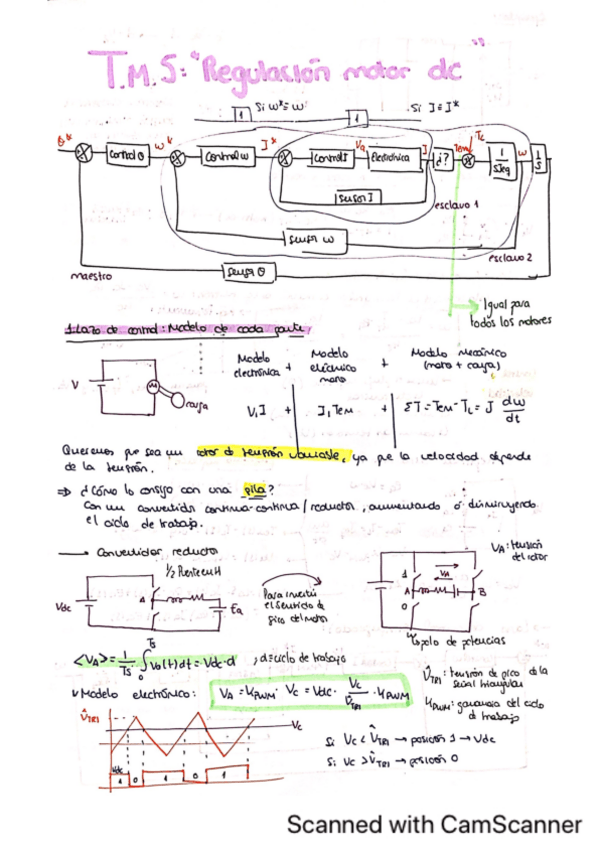 T.M.5: "Regulación motor dc"
1 Si w*≡w 1 Si I≡I*
θ* Control θ w* Control w I* Control I Va Electrónica I ¿? Tem TL 1/SJeq w 1/S
sensor I
esclavo 1
sensor w
esclavo 2
maestro
sensor θ
Igual para
todos los motores
1. Lazo de control: Modelo de cada parte
V M carga
Modelo electrónica + Modelo eléctrico motor + Modelo mecánico (motor + carga)
V, I + I, Tem + ΣT = Tem - TL = J dw/dt
Queremos que sea un motor de tensión variable, ya que la velocidad depende
de la tensión.
⇒ ¿Cómo lo consigo con una pila?
Con un convertidor continua-continua / reductor, aumentando o disminuyendo
el ciclo de trabajo.
Convertidor reductor
VA: tensión
del rotor
1/2 Puente en H
Vdc A Ea
Para invertir
el sentido de
giro del motor
1 0 A VA B
<VA> = 1/Ts ∫0 Ts Vo(t)dt = Vdc·d , d≡ciclo de trabajo
Polo de potencias
V̂TRI: tensión de pico de la
señal triangular
Modelo electrónico: VA = KPWM · Vc = Vdc · Vc/V̂TRI · KPWM
KPWM: ganancia del ciclo
de trabajo
V̂TRI Vc
Si Vc < V̂TRI → posición 1 → Vdc
Si Vc > V̂TRI → posición 0
Vdc
1 0 1 0 1
Scanned with CamScanner